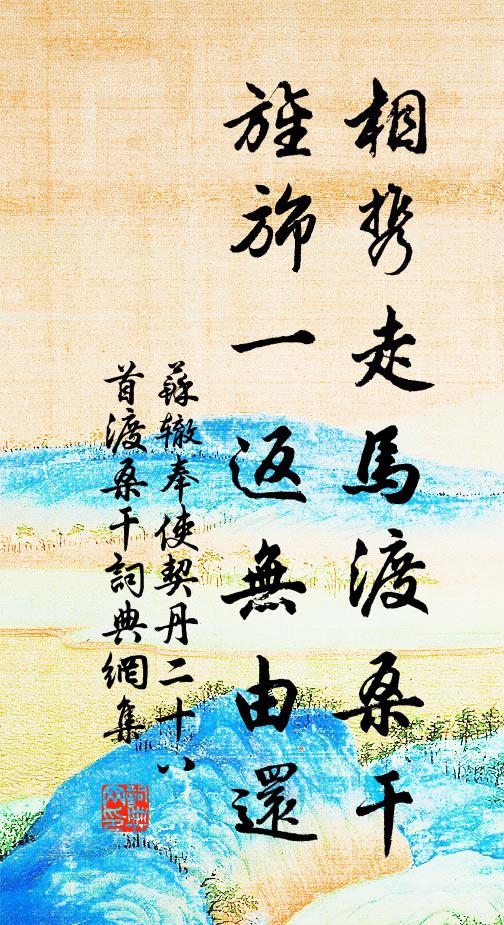 相携走馬渡桑干
旌旆一返無由還
蘇轍奉使契丹二十八
首渡桑干詞典網集